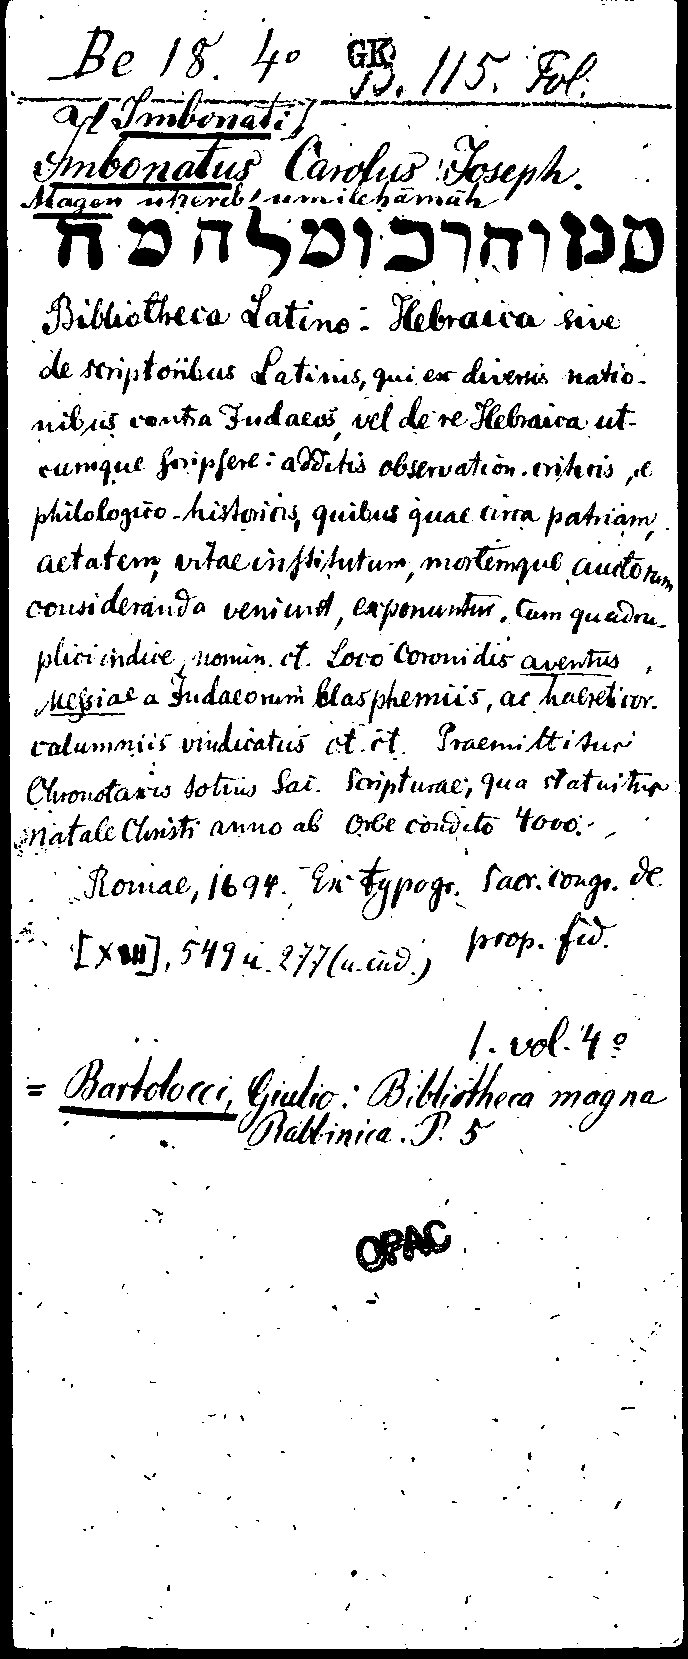 Be 18. 4° GK B. 115. Fol.
[Imbonati]
Imbonatus Carolus Joseph.
Magen uhereb umilchāmāh
מגן וחרב ומלחמה
Bibliotheca Latino-Hebraica sive
de scriptoribus Latinis, qui ex diversis natio-
nibus contra Judaeos, vel de re Hebraica ut-
cumque scripsere: additis observation. criticis, e
philologico-historicis, quibus quae circa patriam,
aetatem, vitae institutum, mortemque auctorum
consideranda veniunt, exponuntur. Cum quadru-
plici indice, nomin. et. Loco Coronidis aventus
Messiae a Judaeorum blasphemiis, ac haereticor.
calumniis vindicatus et. et. Praemittitur
Chronotaxis totius Sac. Scripturae, qua statuitur
natale Christi anno ab Orbe condito 4000.
Romae, 1694. Ex typogr. Sacr. congr. de
prop. fid.
[XIII], 549 u. 277 (u. ind.)
1. vol. 4°
= Bartolocci, Giulio: Bibliotheca magna
Rabbinica. P. 5
OPAC